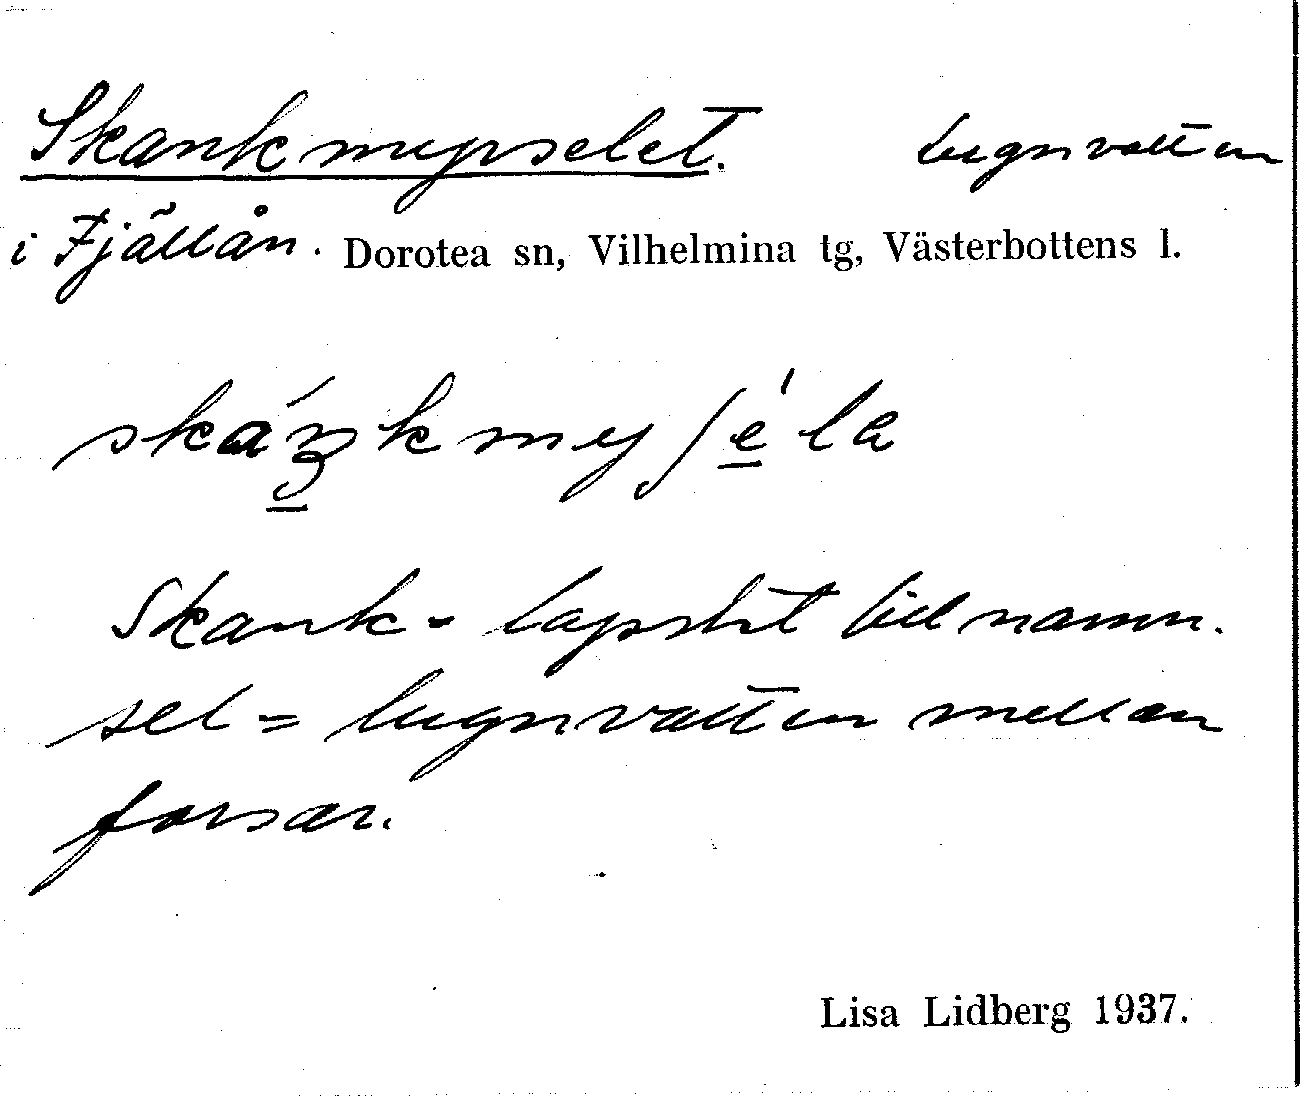 Skankmyrselet. lugnvatten
i Fjällån. Dorotea sn, Vilhelmina tg, Västerbottens l.
Skank = lapskt tillnamn.
sel = lugnvatten mellan
forsar.
Lisa Lidberg 1937.